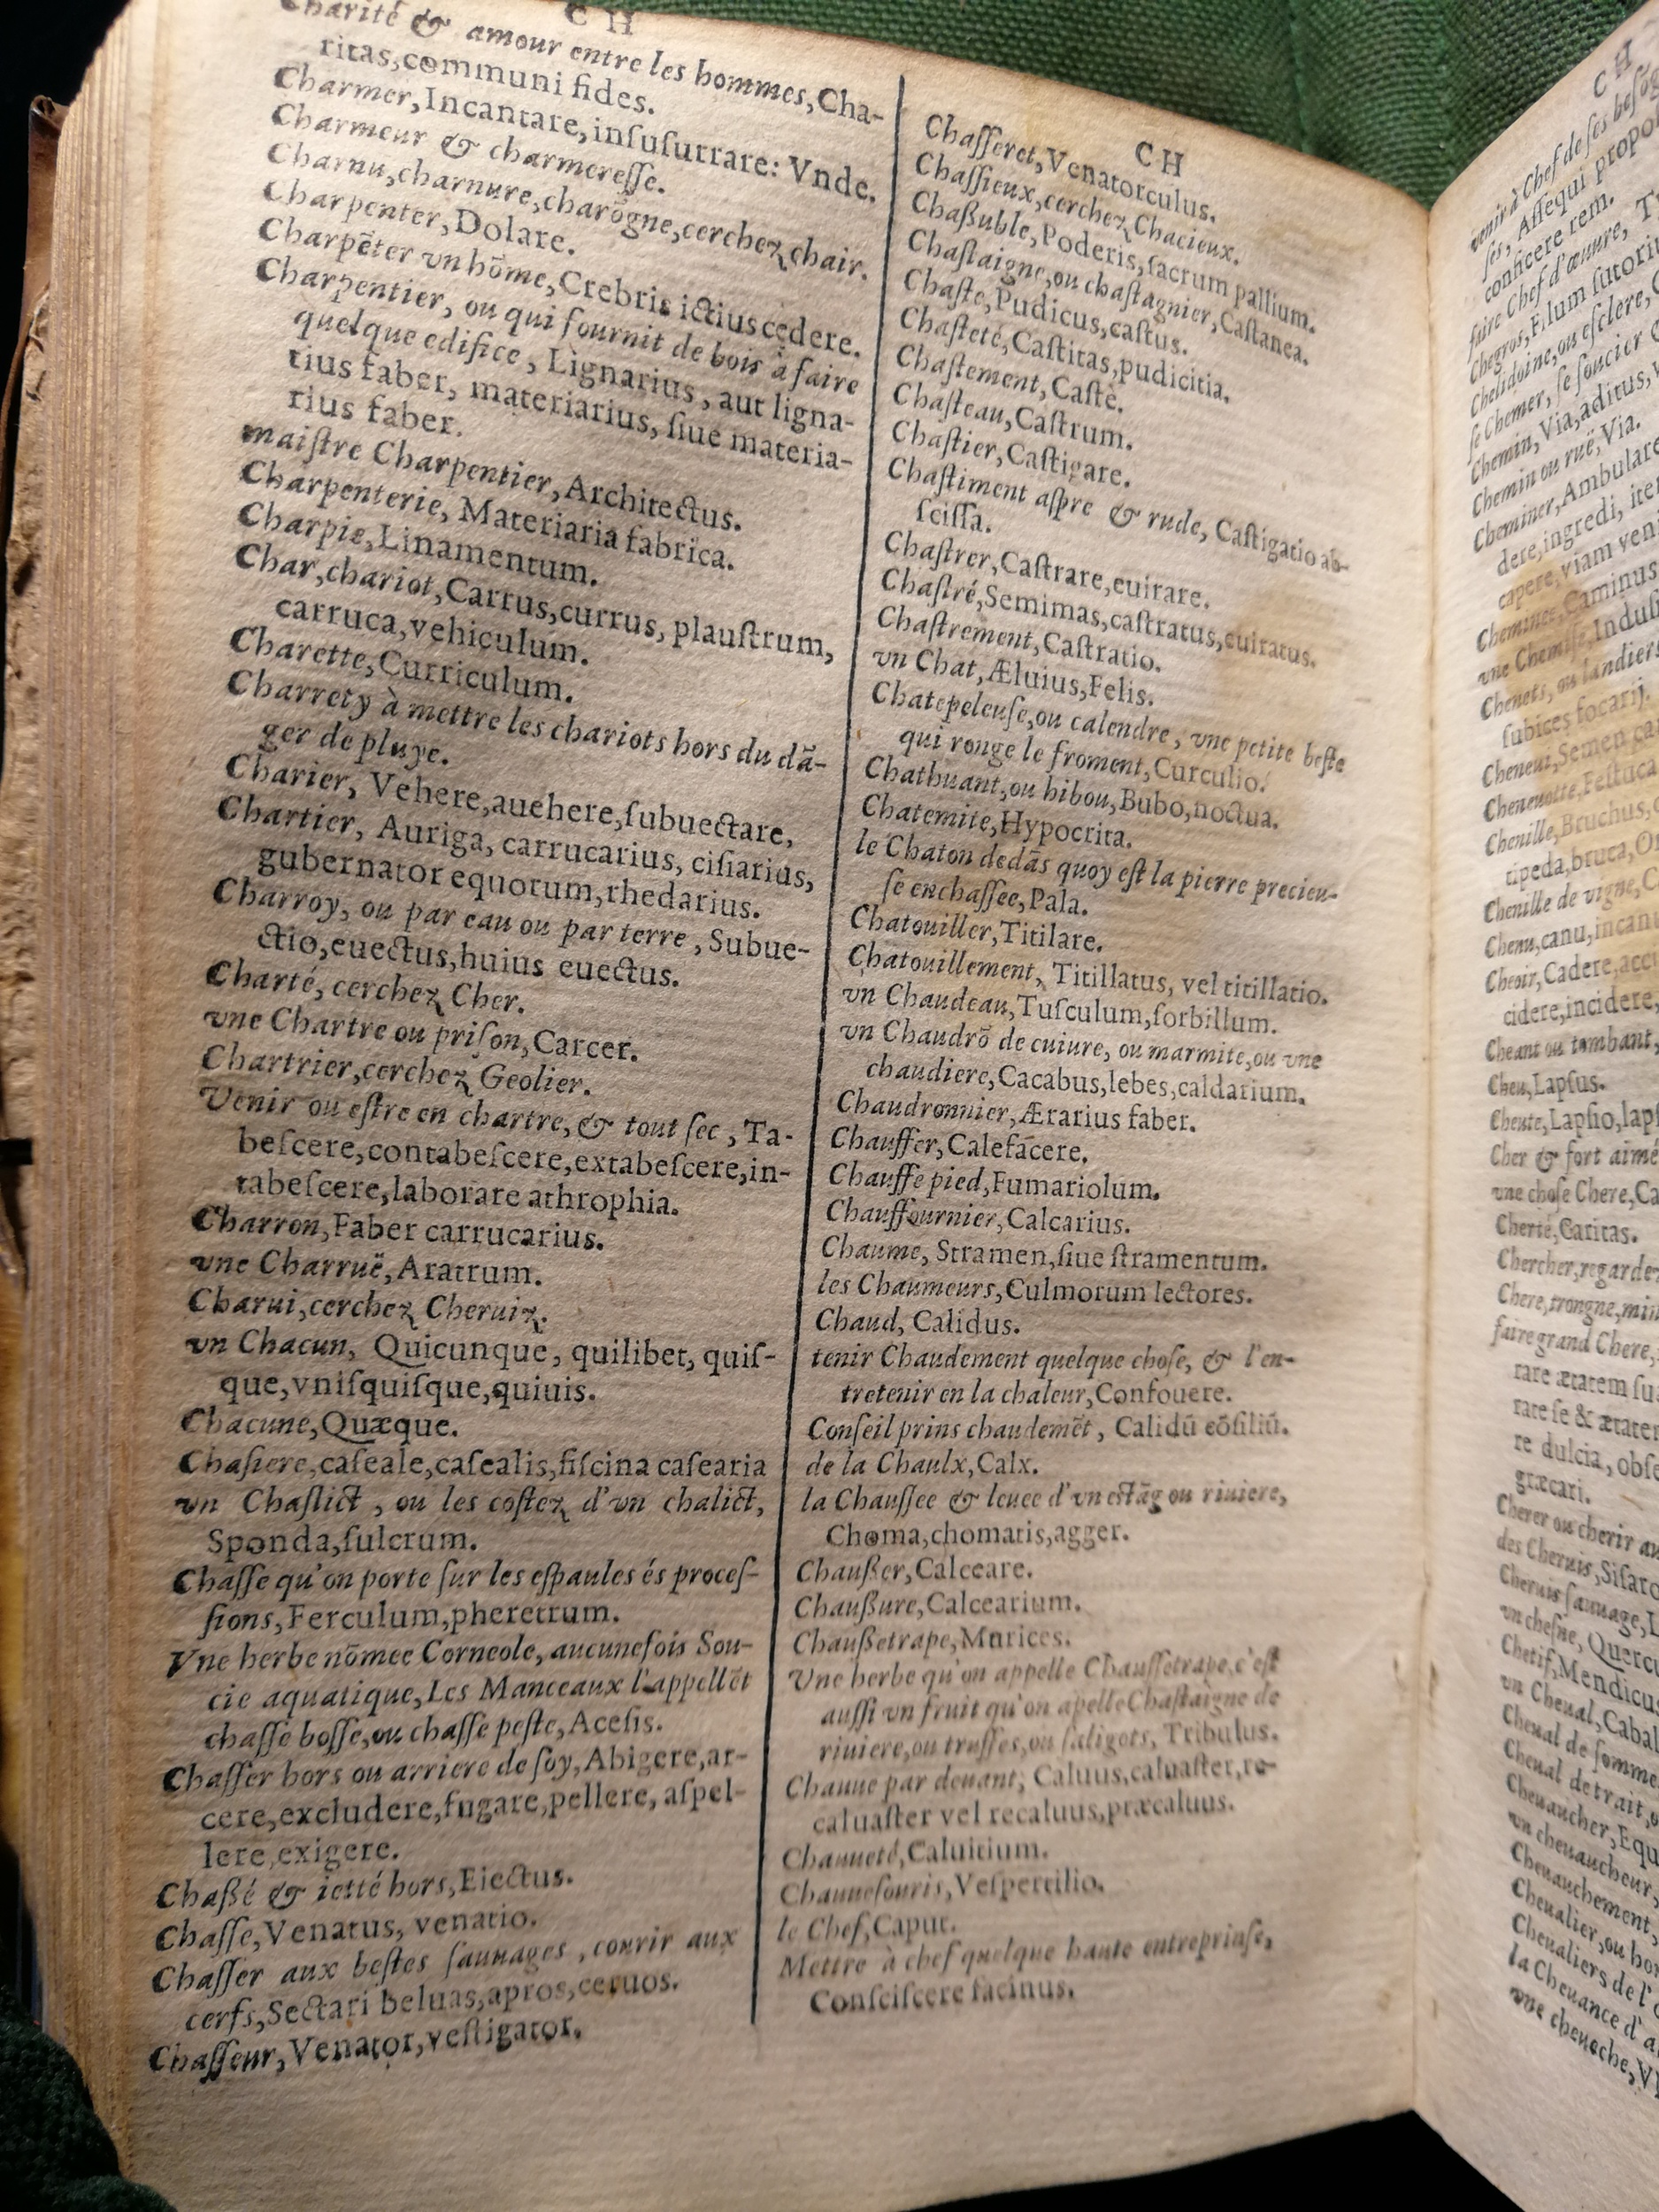 CH
Charité & amour entre les hommes, Cha-
ritas, communi fides.
Charmer, Incantare, inſuſurrare: Vnde.
Charmeur & charmereſſe.
Charnu, charnure, charõgne, cerchez chair.
Charpenter, Dolare.
Charpēter vn hõme, Crebris ictius cędere.
Charpentier, ou qui fournit de bois à faire
quelque edifice, Lignarius, aut ligna-
tius faber, materiarius, ſiue materia-
rius faber.
maiſtre Charpentier, Architectus.
Charpenterie, Materiaria fabrica.
Charpie, Linamentum.
Char, chariot, Carrus, currus, plauſtrum,
carruca, vehiculum.
Charette, Curriculum.
Charrety à mettre les chariots hors du dã-
ger de pluye.
Charier, Vehere, auehere, ſubuectare,
Chartier, Auriga, carrucarius, ciſiarius,
gubernator equorum, rhedarius.
Charroy, ou par eau ou par terre, Subue-
ctio, euectus, huius euectus.
Charté, cerchez Cher.
vne Chartre ou priſon, Carcer.
Chartrier, cerchez Geolier.
Venir ou eſtre en chartre, & tout ſec, Ta-
beſcere, contabeſcere, extabeſcere, in-
tabeſcere, laborare athrophia.
Charron, Faber carrucarius.
vne Charruë, Aratrum.
Charui, cerchez Cheruiz.
vn Chacun, Quicunque, quilibet, quiſ-
que, vniſquiſque, quiuis.
Chacune, Quæque.
Chaſiere, caſeale, caſealis, fiſcina caſearia
vn Chaſlict, ou les coſtez d'vn chalict,
Sponda, fulcrum.
Chaſſe qu'on porte ſur les eſpaules és proceſ-
ſions, Ferculum, pheretrum.
Vne herbe nõmee Corneole, aucunefois Sou-
cie aquatique, Les Manceaux l'appellēt
chaſſe boſſe, ou chaſſe peſte, Aceſis.
Chaſſer hors ou arriere de ſoy, Abigere, ar-
cere, excludere, fugare, pellere, aſpel-
lere, exigere.
Chaßé & ietté hors, Eiectus.
Chaſſe, Venatus, venatio.
Chaſſer aux beſtes ſauuages, courir aux
cerfs, Sectari beluas, apros, ceruos.
Chaſſeur, Venator, veſtigator.
CH
Chaſſeret, Venatorculus.
Chaſſieux, cerchez Chacieux.
Chaßuble, Poderis, ſacrum pallium.
Chaſtaigne, ou chaſtagnier, Caſtanea.
Chaſte, Pudicus, caſtus.
Chaſteté, Caſtitas, pudicitia.
Chaſtement, Caſtè.
Chaſteau, Caſtrum.
Chaſtier, Caſtigare.
Chaſtiment aſpre & rude, Caſtigatio ab-
ſciſſa.
Chaſtrer, Caſtrare, euirare.
Chaſtré, Semimas, caſtratus, euiratus.
Chaſtrement, Caſtratio.
vn Chat, Æluius, Felis.
Chatepeleuſe, ou calendre, vne petite beſte
qui ronge le froment, Curculio.
Chathuant, ou hibou, Bubo, noctua.
Chatemite, Hypocrita.
le Chaton dedãs quoy eſt la pierre precieu-
ſe enchaſſee, Pala.
Chatouiller, Titilare.
Chatouillement, Titillatus, vel titillatio.
vn Chaudeau, Tuſculum, ſorbillum.
vn Chaudrõ de cuiure, ou marmite, ou vne
chaudiere, Cacabus, lebes, caldarium.
Chaudronnier, Ærarius faber.
Chauffer, Calefacere.
Chauffe pied, Fumariolum.
Chauffournier, Calcarius.
Chaume, Stramen, ſiue ſtramentum.
les Chaumeurs, Culmorum lectores.
Chaud, Calidus.
tenir Chaudement quelque choſe, & l'en-
tretenir en la chaleur, Confouere.
Conſeil prins chaudemēt, Calidũ cõſiliũ.
de la Chaulx, Calx.
la Chauſſee & leuee d'vn eſtãg ou riuiere,
Choma, chomatis, agger.
Chaußer, Calceare.
Chaußure, Calcearium.
Chaußetrape, Murices.
Vne herbe qu'on appelle Chauſſetrape, c'eſt
auſſi vn fruit qu'on apelle Chaſtaigne de
riuiere, ou truffes, ou ſaligots, Tribulus.
Chauue par deuant, Caluus, caluaſter, re-
caluaſter vel recaluus, præcaluus.
Chauueté, Caluitium.
Chauueſouris, Veſpertilio.
le Chef, Caput.
Mettre à chef quelque haute entreprinſe,
Conſciſcere facinus.
CH
venir à Chef de ſes beſõg
ſes, Aſſequi propo
conficere rem.
faire Chef d'œuure, T
Chegros, Filum ſutoriu
Chelidoine, ou eſclere, C
ſe Chemer, ſe ſoucier &
Chemin, Via, aditus, v
Chemin ou ruë, Via.
Cheminer, Ambulare
dere, ingredi, iter
capere, viam veni
Cheminee, Caminus
vne Chemiſe, Induſi
Chenets, ou landiers
ſubices focarij.
Cheneui, Semen ca
Cheneuotte, Feſtuca
Chenille, Bruchus, c
tipeda, bruca, Or
Chenille de vigne, C
Chenu, canu, incanu
Cheoir, Cadere, accı
cidere, incidere,
Cheant ou tombant,
Cheu, Lapſus.
Cheute, Lapſio, lapſ
Cher & fort aimé
vne choſe Chere, Ca
Cherté, Caritas.
Chercher, regardez
Chere, trongne, min
faire grand Chere,
rare ætatem ſu
rare ſe & ætater
re dulcia, obſe
græcari.
Cherer ou cherir au
des Cheruis, Siſaro
Cheruis ſauuage, L
vn cheſne, Quercu
Chetif, Mendicus
vn Cheual, Cabal
Cheual de ſomme
Cheual de trait, o
Cheuaucher, Equ
vn cheuaucheur,
Cheuauchement,
Cheualier, ou hor
Cheualiers de l'o
la Cheuance d'a
vne cheueche, Vl